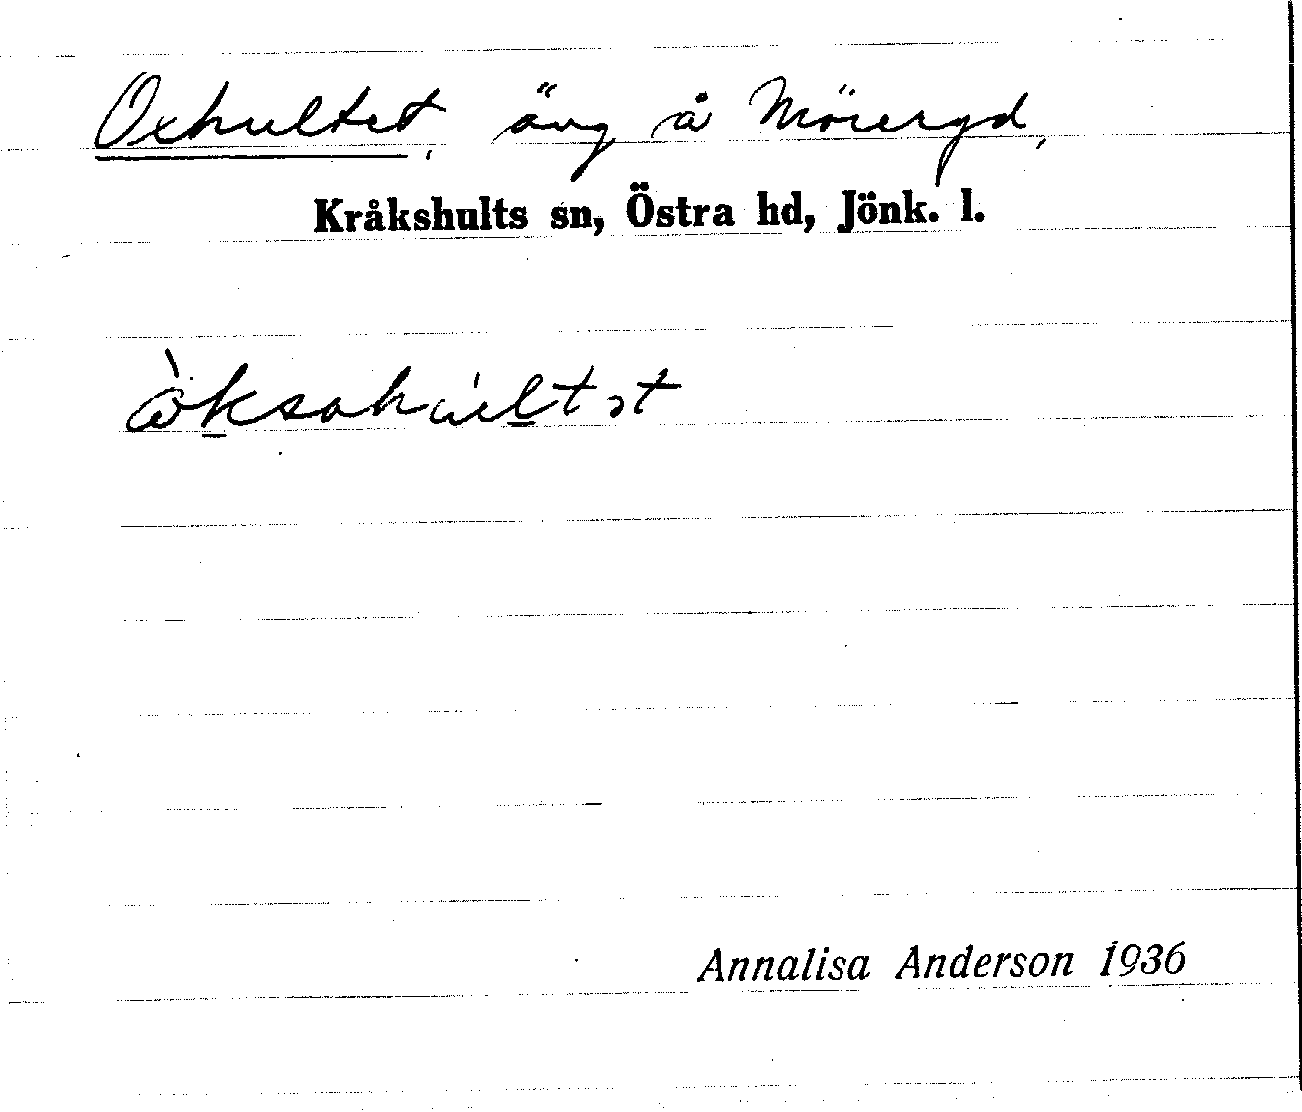 Oxhultet, äng å Möckergd,
Kråkshults sn, Östra hd, Jönk. l.
Annalisa Anderson 1936